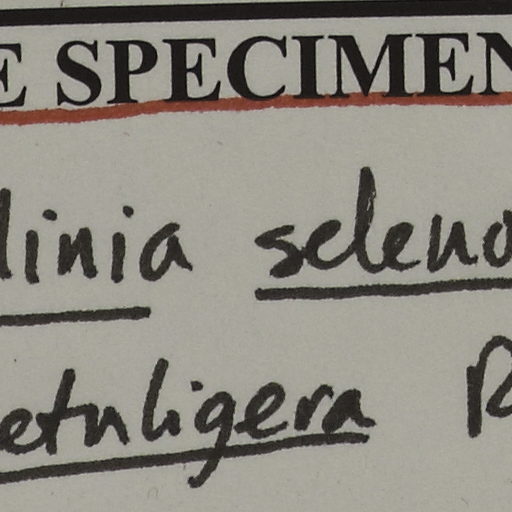 E SPECIMEN
linia seleno
etuligera R